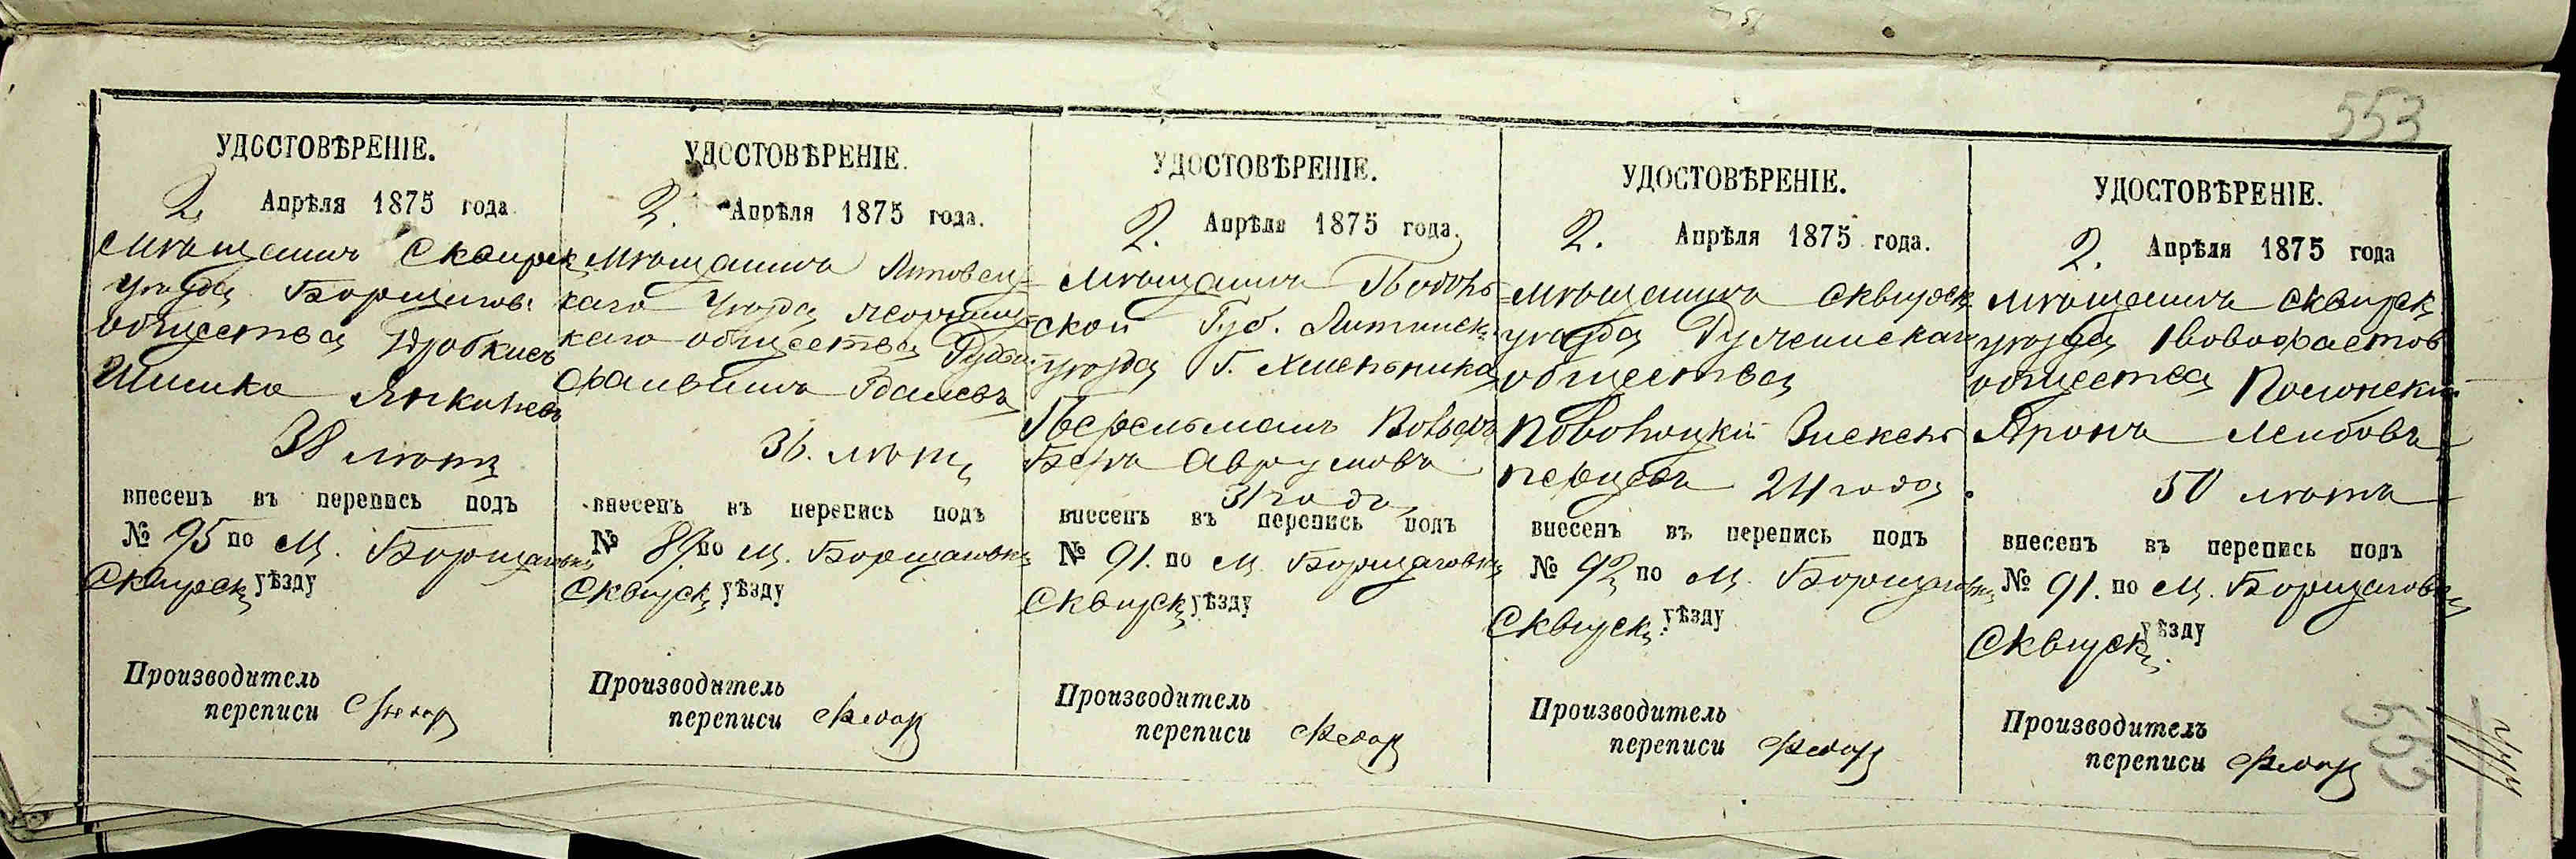 553
УДОСТОВѢРЕНІЕ.
2. Апрѣля 1875 года
Мѣщанинъ Сквирск
уѣзда Борщагов.
общества
Шимко Янкелевъ
38 лѣтъ
внесенъ въ перепись подъ
№ 95 по м. Борщаговкѣ
Сквирск уѣзду
Производитель
переписи
УДОСТОВѢРЕНІЕ.
2. Апрѣля 1875 года.
Мѣщанинъ Липовец-
каго уѣзда
каго общества
36. лѣтъ
внесенъ въ перепись подъ
№ 89. по м. Борщаговкѣ
Сквирск уѣзду
Производитель
переписи
УДОСТОВѢРЕНІЕ.
2. Апрѣля 1875 года.
Мѣщанинъ Подоль-
ской Губ. Литинск.
уѣзда Г. Хмельника
Перельманъ Вольфъ
Беръ Аврумовъ
31 года
внесенъ въ перепись подъ
№ 91. по м. Борщаговкѣ
Сквирск уѣзду
Производитель
переписи
УДОСТОВѢРЕНІЕ.
2. Апрѣля 1875 года.
Мѣщанинъ Сквирск
уѣзда Ружинскаго
общества
24 года
внесенъ въ перепись подъ
№ 92 по м. Борщаговкѣ
Сквирск. уѣзду
Производитель
переписи
УДОСТОВѢРЕНІЕ.
2. Апрѣля 1875 года
Мѣщанинъ Сквирск
уѣзда Новофастов
общества Полонскій
Аронъ Лейбовъ
50 лѣтъ
внесенъ въ перепись подъ
№ 91. по м. Борщаговкѣ
Сквирск. уѣзду
Производитель
переписи
553